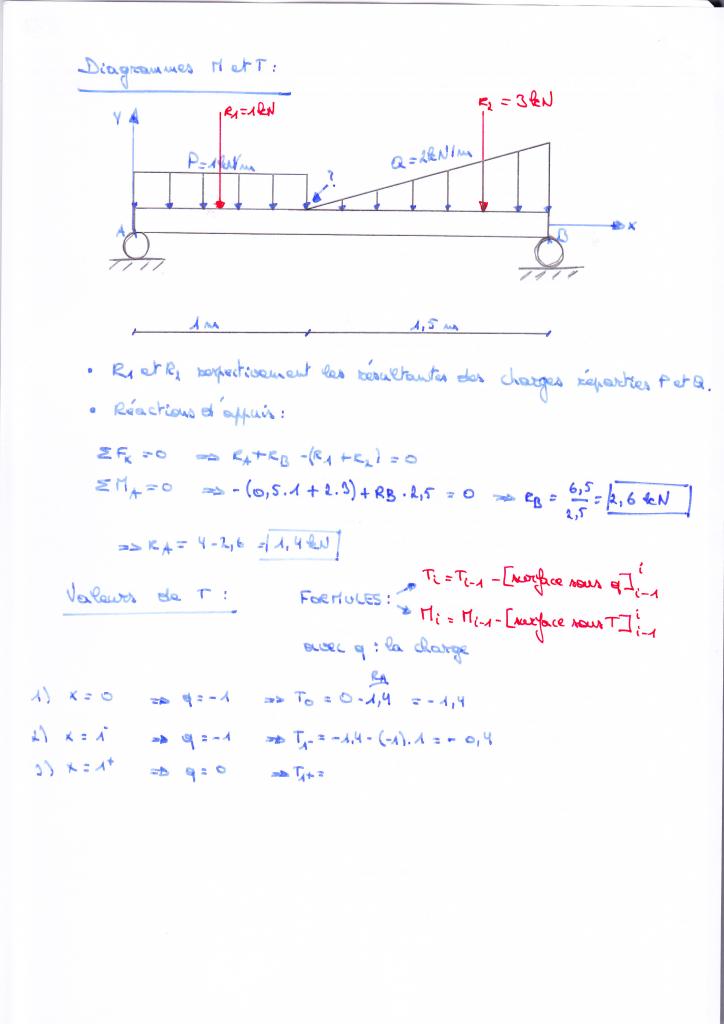 Diagrammes M et T :
R1=1kN
R2 = 3kN
Y
P=1kN/m
Q=2kN/m
?
A
B
x
1 m
1,5 m
• R1 et R2 respectivement les résultantes des charges réparties P et Q.
• Réactions d'appuis :
ΣFx = 0 ⇒ RA+RB -(R1+R2) = 0
ΣMA = 0 ⇒ -(0,5.1 + 2.3) + RB.2,5 = 0 ⇒ RB = 6,5/2,5 = 2,6 kN
⇒ RA = 4-2,6 = 1,4 kN
Valeurs de T :
FORMULES :
Ti = Ti-1 - [surface sous q]i i-1
Mi = Mi-1 - [surface sous T]i i-1
avec q : la charge
RA
1) x = 0 ⇒ q = -1 ⇒ T0 = 0 - 1,4 = -1,4
2) x = 1- ⇒ q = -1 ⇒ T1- = -1,4 - (-1).1 = - 0,4
3) x = 1+ ⇒ q = 0 ⇒ T1+ =